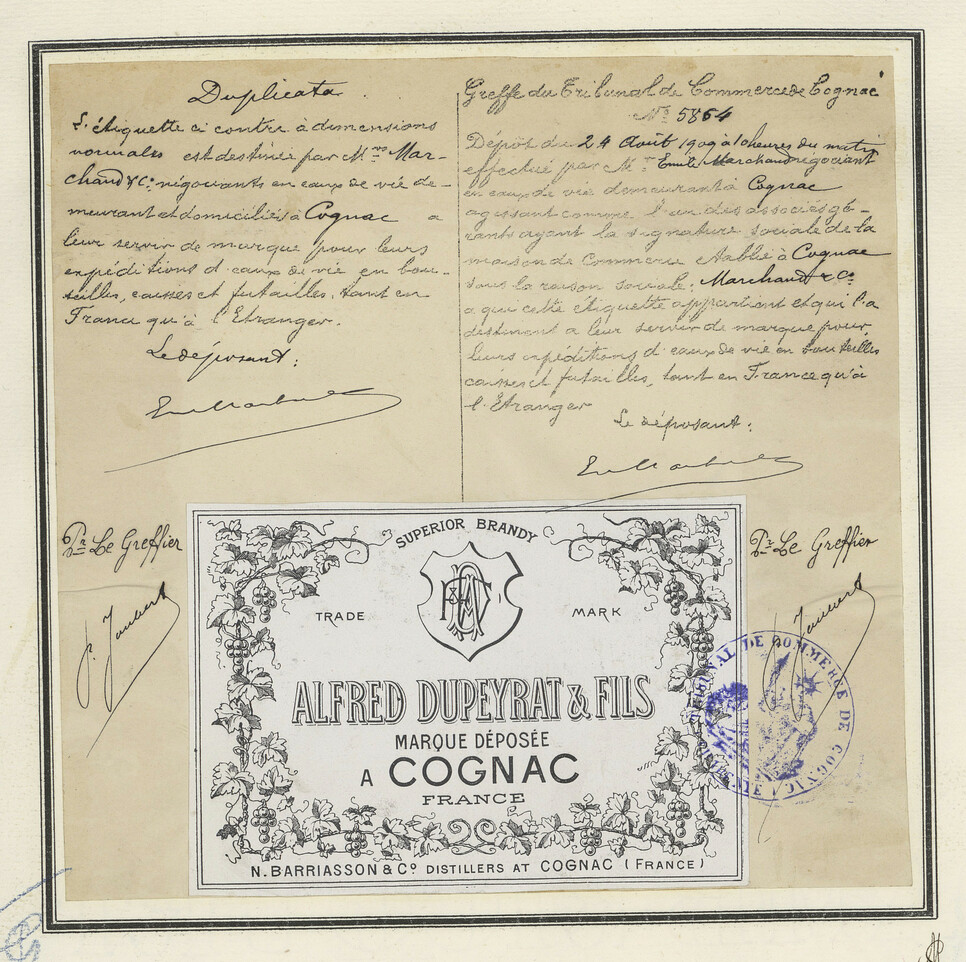 Duplicata
L'étiquette ci contre à dimensions
normales est destinée par M.rs Mar-
chand & Cie négociants en eaux de vie de-
meurant et domiciliés à Cognac a
leur servir de marque pour leurs
expéditions d'eaux de vie en bou-
teilles, caisses et futailles, tant en
France qu'à l'Etranger.
Le déposant:
Pr Le Greffier
J. Joubert
Greffe du Tribunal de Commerce de Cognac
No 5864
Dépôt du 24 Août 1909 à 10 heures du matin
effectué par Mr Emile Marchand négociant
en eaux de vie demeurant à Cognac
agissant comme l'un des associés gé-
rants ayant la signature sociale de la
maison de Commerce établie à Cognac
sous la raison sociale: Marchand & Co
a qui cette étiquette appartient et qui l'a
destinent a leur servir de marque pour
leurs expéditions d'eaux de vie en bouteilles
caisses et futailles, tant en France qu'à
l'Etranger
Le déposant:
Pr Le Greffier
J. Joubert
SUPERIOR BRANDY
TRADE MARK
ALFRED DUPEYRAT & FILS
MARQUE DÉPOSÉE
A COGNAC
FRANCE
N. BARRIASSON & Co DISTILLERS AT COGNAC (FRANCE)
TRIBUNAL DE COMMERCE DE COGNAC